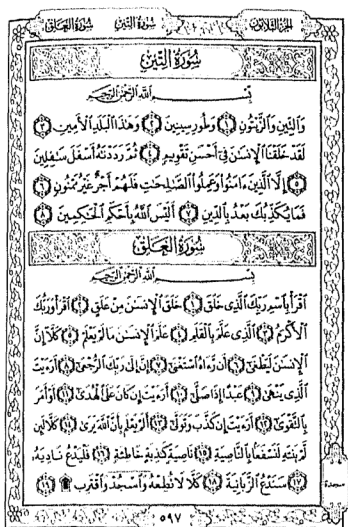 الجزء الثلاثون سورة التين سورة العلق
سُورَةُ التِّينِ
بِسْمِ اللَّهِ الرَّحْمَٰنِ الرَّحِيمِ
وَالتِّينِ وَالزَّيْتُونِ ۝١ وَطُورِ سِينِينَ ۝٢ وَهَٰذَا الْبَلَدِ الْأَمِينِ ۝٣
لَقَدْ خَلَقْنَا الْإِنسَٰنَ فِي أَحْسَنِ تَقْوِيمٍ ۝٤ ثُمَّ رَدَدْنَٰهُ أَسْفَلَ سَٰفِلِينَ
۝٥ إِلَّا الَّذِينَ ءَامَنُوا وَعَمِلُوا الصَّٰلِحَٰتِ فَلَهُمْ أَجْرٌ غَيْرُ مَمْنُونٍ ۝٦
فَمَا يُكَذِّبُكَ بَعْدُ بِالدِّينِ ۝٧ أَلَيْسَ اللَّهُ بِأَحْكَمِ الْحَٰكِمِينَ ۝٨
سُورَةُ الْعَلَقِ
بِسْمِ اللَّهِ الرَّحْمَٰنِ الرَّحِيمِ
اقْرَأْ بِاسْمِ رَبِّكَ الَّذِي خَلَقَ ۝١ خَلَقَ الْإِنسَٰنَ مِنْ عَلَقٍ ۝٢ اقْرَأْ وَرَبُّكَ
الْأَكْرَمُ ۝٣ الَّذِي عَلَّمَ بِالْقَلَمِ ۝٤ عَلَّمَ الْإِنسَٰنَ مَا لَمْ يَعْلَمْ ۝٥ كَلَّا إِنَّ
الْإِنسَٰنَ لَيَطْغَىٰ ۝٦ أَن رَّءَاهُ اسْتَغْنَىٰ ۝٧ إِنَّ إِلَىٰ رَبِّكَ الرُّجْعَىٰ ۝٨ أَرَءَيْتَ
الَّذِي يَنْهَىٰ ۝٩ عَبْدًا إِذَا صَلَّىٰ ۝١٠ أَرَءَيْتَ إِن كَانَ عَلَى الْهُدَىٰ ۝١١ أَوْ أَمَرَ
بِالتَّقْوَىٰ ۝١٢ أَرَءَيْتَ إِن كَذَّبَ وَتَوَلَّىٰ ۝١٣ أَلَمْ يَعْلَم بِأَنَّ اللَّهَ يَرَىٰ ۝١٤ كَلَّا لَئِن
لَّمْ يَنتَهِ لَنَسْفَعًا بِالنَّاصِيَةِ ۝١٥ نَاصِيَةٍ كَٰذِبَةٍ خَاطِئَةٍ ۝١٦ فَلْيَدْعُ نَادِيَهُ
۝١٧ سَنَدْعُ الزَّبَانِيَةَ ۝١٨ كَلَّا لَا تُطِعْهُ وَاسْجُدْ وَاقْتَرِب ۩ ۝١٩
سجدة
٥٩٧